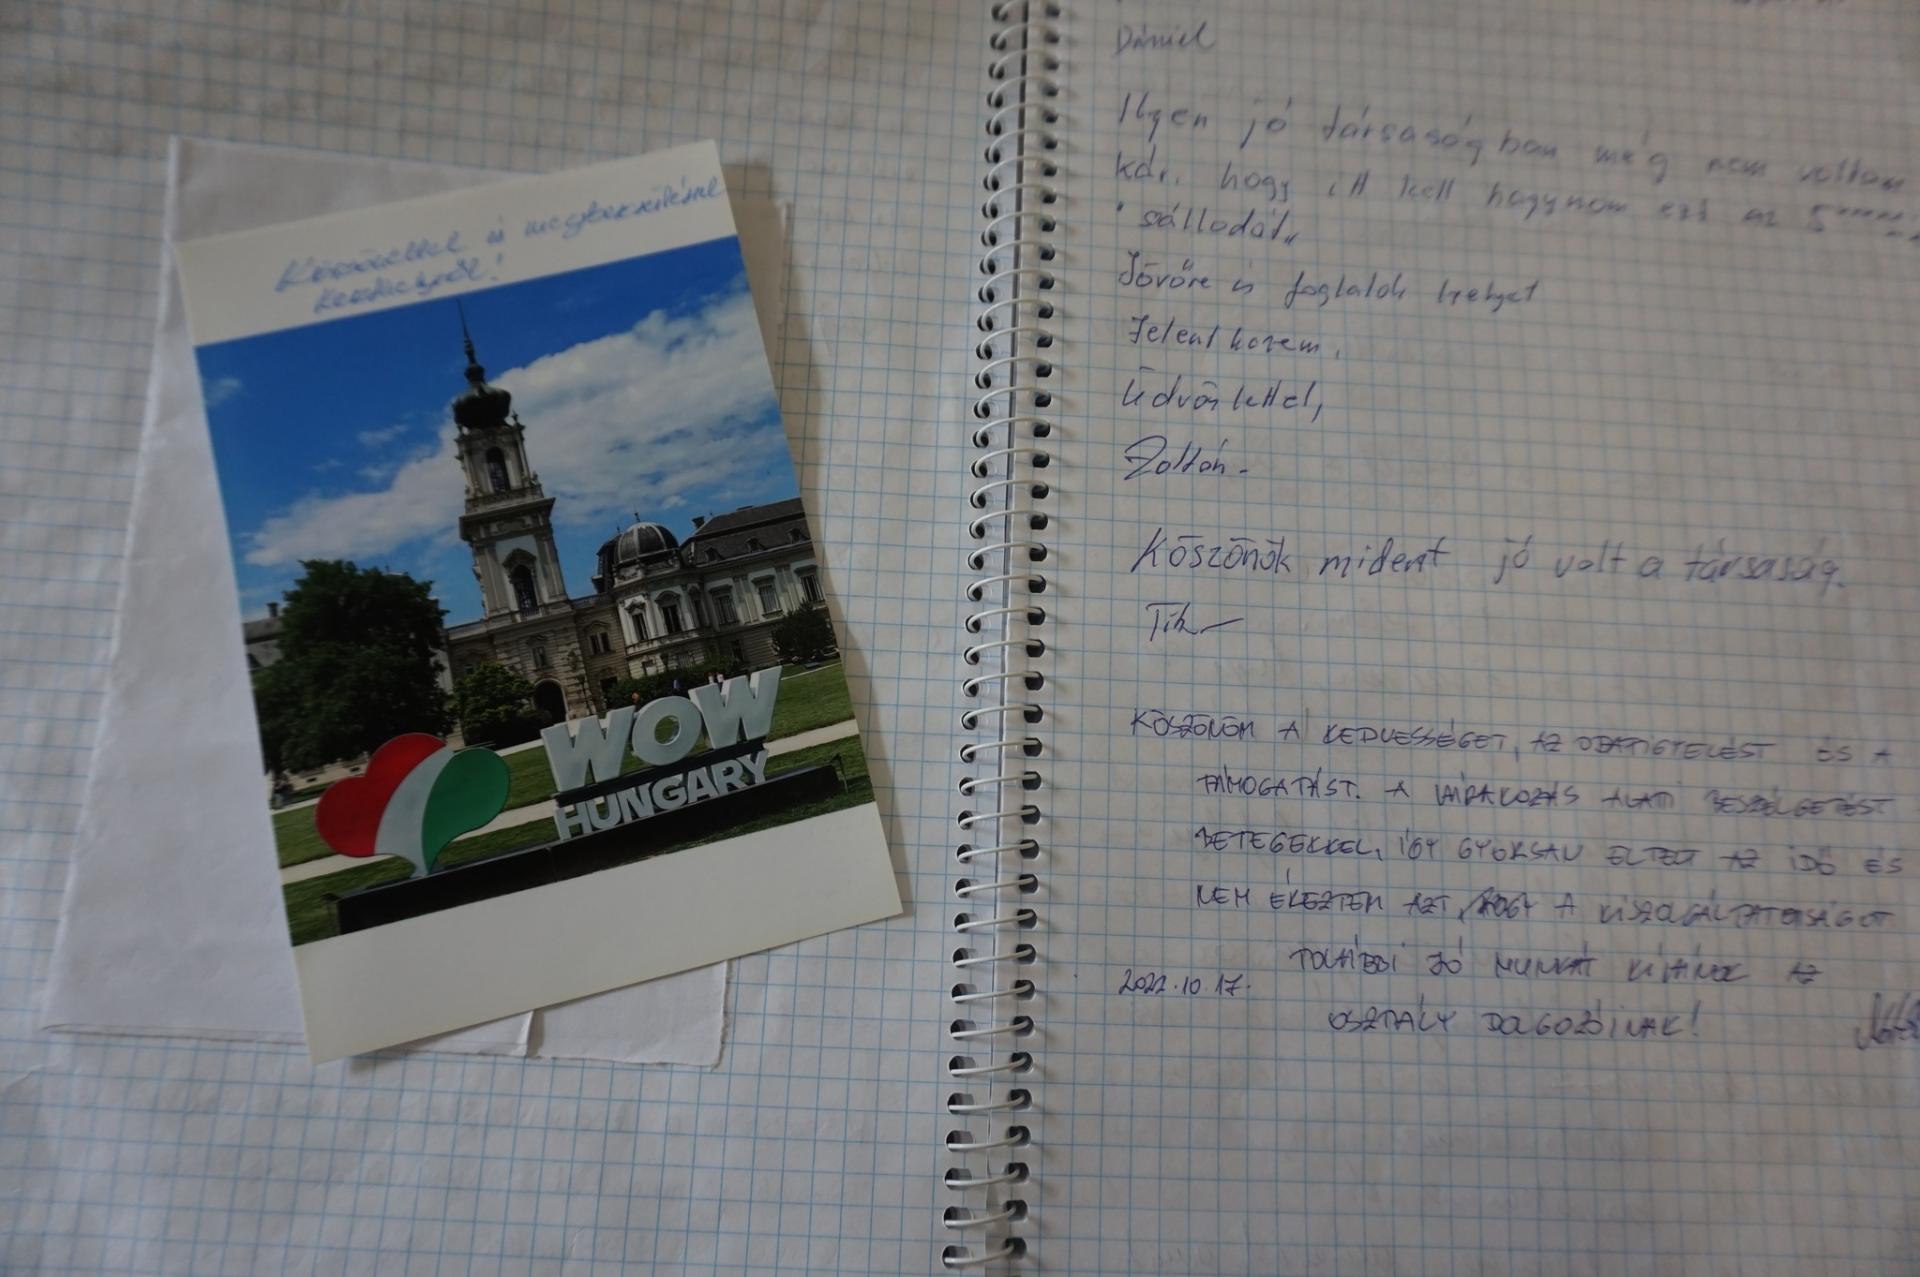 Köszönettel és megbecsüléssel
Keszthelyről!
WOW
HUNGARY
Dániel
Ilyen jó társaságban még nem voltam
kár, hogy itt kell hagynom ezt az 5*****
"szállodát"
Jövőre is foglalok helyet
Jelentkezem,
Üdvözlettel,
Zoltán
Köszönök mident jó volt a társaság.
KÖSZÖNÖM A KEDVESSÉGET, AZ ODAFIGYELÉST ÉS A
TÁMOGATÁST. A VÁRAKOZÁS ALATI BESZÉLGETÉST
BETEGEKKEL, ÍGY GYORSAN ELTELT AZ IDŐ ÉS
NEM ÉREZTEM AZT, HOGY A KISZOLGÁLTATOTSÁGOT
TOVÁBBI JÓ MUNKÁT KÍVÁNOK AZ
2022.10.17.
OSZTÁLY DOLGOZÓINAK!